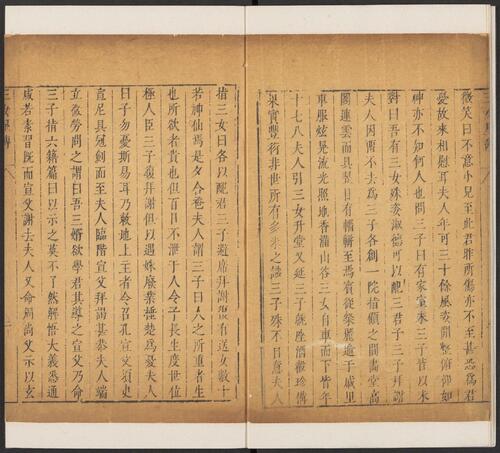 微笑曰不意小兒至此君雖所傷亦不至甚恐為君
憂故來相慰耳夫人年可三十餘風姿閑整俯仰如
神亦不知何人也問三子曰有家室未三子皆以未
對曰吾有三女殊姿淑德可以配三君子三子拜謝
夫人因留不去為三子各創一院指顧之間畫堂高
閣連雲而具翌日有輜軿至焉賓從粲麗逾于戚里
車服炫晃流光照地香滿山谷三女自車而下皆年
十七八夫人引三女升堂又延三子就座酒殽珍備
果實豐衍非世所有多未之識三子殊不自意夫人
指三女曰各以配君三子避席拜謝復有送女數十
若神仙焉是夕合巹夫人謂三子曰人之所重者生
也所欲者貴也但百日不泄于人令子長生度世位
極人臣三子復拜謝但以遇姝廢業捶楚為憂夫人
曰子勿憂斯易耳乃敕地上主者令召孔宣父須臾
宣尼具冠劍而至夫人臨階宣父拜謁甚恭夫人端
立微勞問之謂曰吾三婿欲學君其導之宣父乃命
三子指六籍篇目以示之莫不了然解悟大義悉通
咸若素習既而宣父謝去夫人又命周尚父示以玄